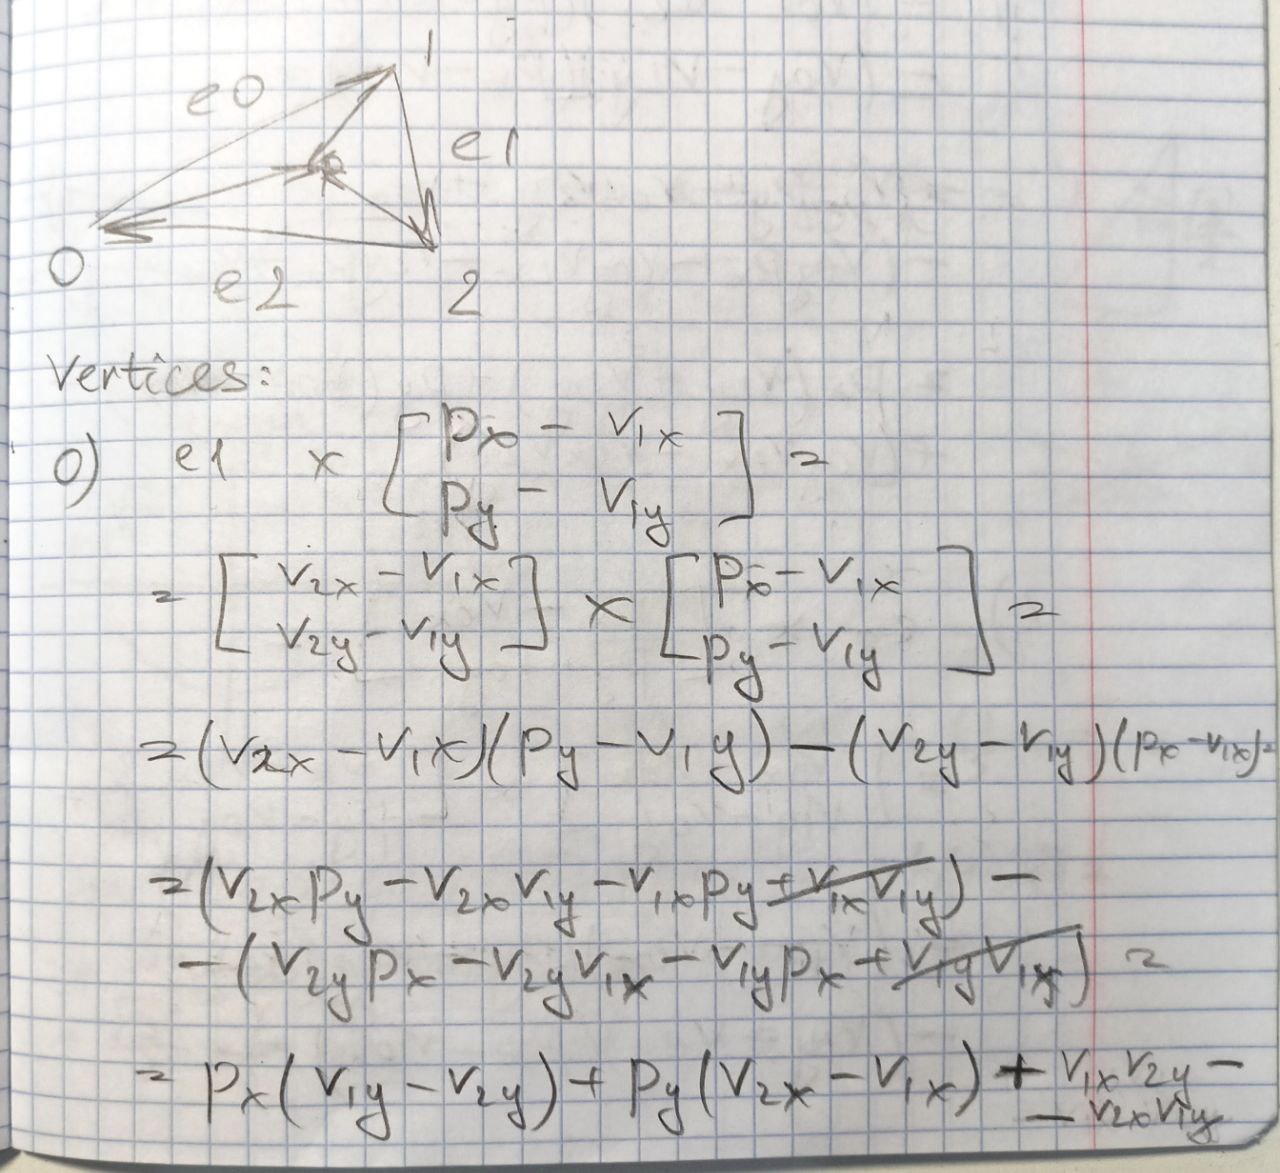 1
e0
e1
P
0
e2
2
Vertices:
0) e1 × [ Px - V1x ] =
[ Py - V1y ]
= [ V2x - V1x ] × [ Px - V1x ] =
[ V2y - V1y ] [ Py - V1y ]
= (V2x - V1x)(Py - V1y) - (V2y - V1y)(Px - V1x) =
= (V2xPy - V2xV1y - V1xPy + V1xV1y) -
- (V2yPx - V2yV1x - V1yPx + V1yV1x) =
= Px(V1y - V2y) + Py(V2x - V1x) + V1xV2y -
- V2xV1y